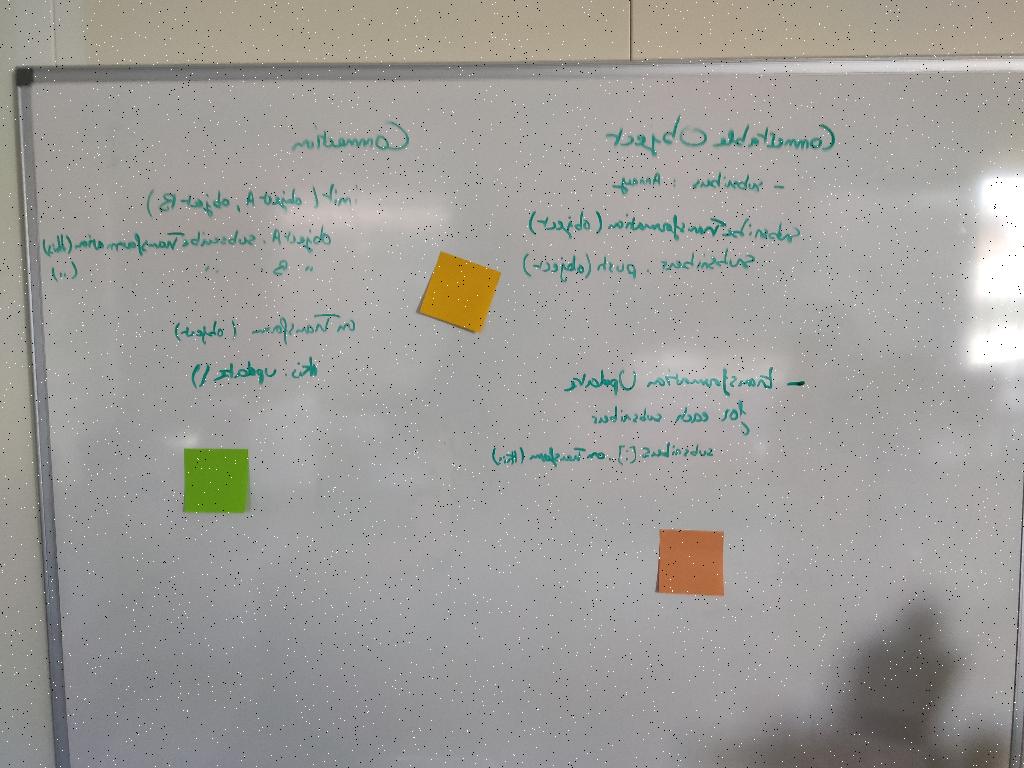 Connectable Object
- subscribers : Array
subscribeTransformation (object)
subscribers . push (object)
- transformation Update
for each subscriber
subscribers [i] . onTransform (this)
Connection
init (object A, object B)
object A . subscribeTransformation (this)
" B " (")
onTransform (object)
this . update ()